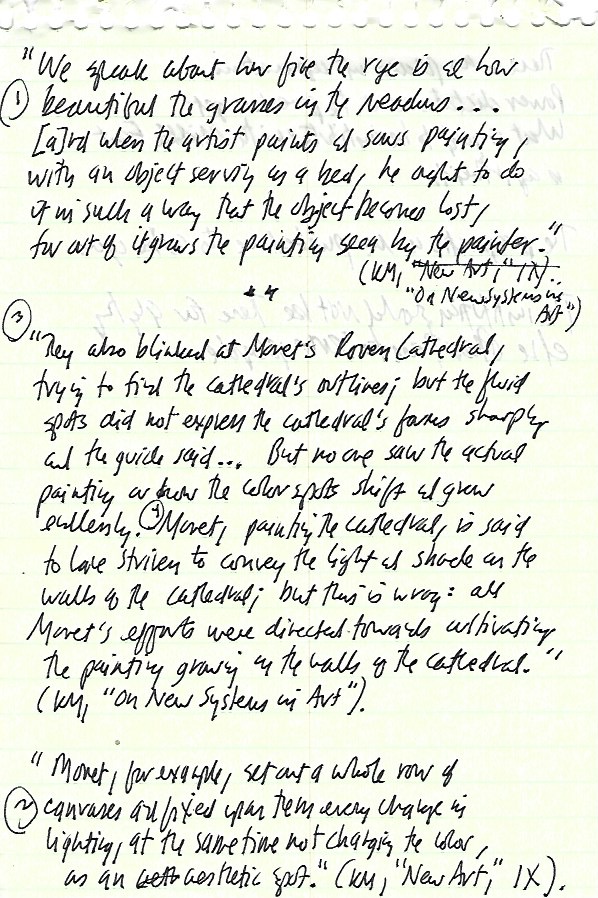 "We speak about how fine the rye is and how
① beautiful the grasses in the meadows...
[a]nd when the artist paints and sows painting,
with an object serving as a bed, he ought to do
it in such a way that the object becomes lost,
for out of it grows the painting seen by the painter."
(KM, "New Art," IX)..
"On New Systems in
Art")
③
"They also blinked at Monet's Rouen Cathedral,
trying to find the cathedral's outlines; but the fluid
spots did not express the cathedral's forms sharply
and the guide said... But no one saw the actual
painting or how the color spots shift and grow
endlessly. ④ Monet, painting the cathedral, is said
to have striven to convey the light and shade on the
walls of the cathedral; but this is wrong: all
Monet's efforts were directed towards cultivating
the painting growing on the walls of the cathedral.""
(KM, "On New Systems in Art").
"Monet, for example, set out a whole row of
② canvases and fixed upon them every change in
lighting, at the same time not changing the color,
as an aesthetic spot." (KM, "New Art," IX).